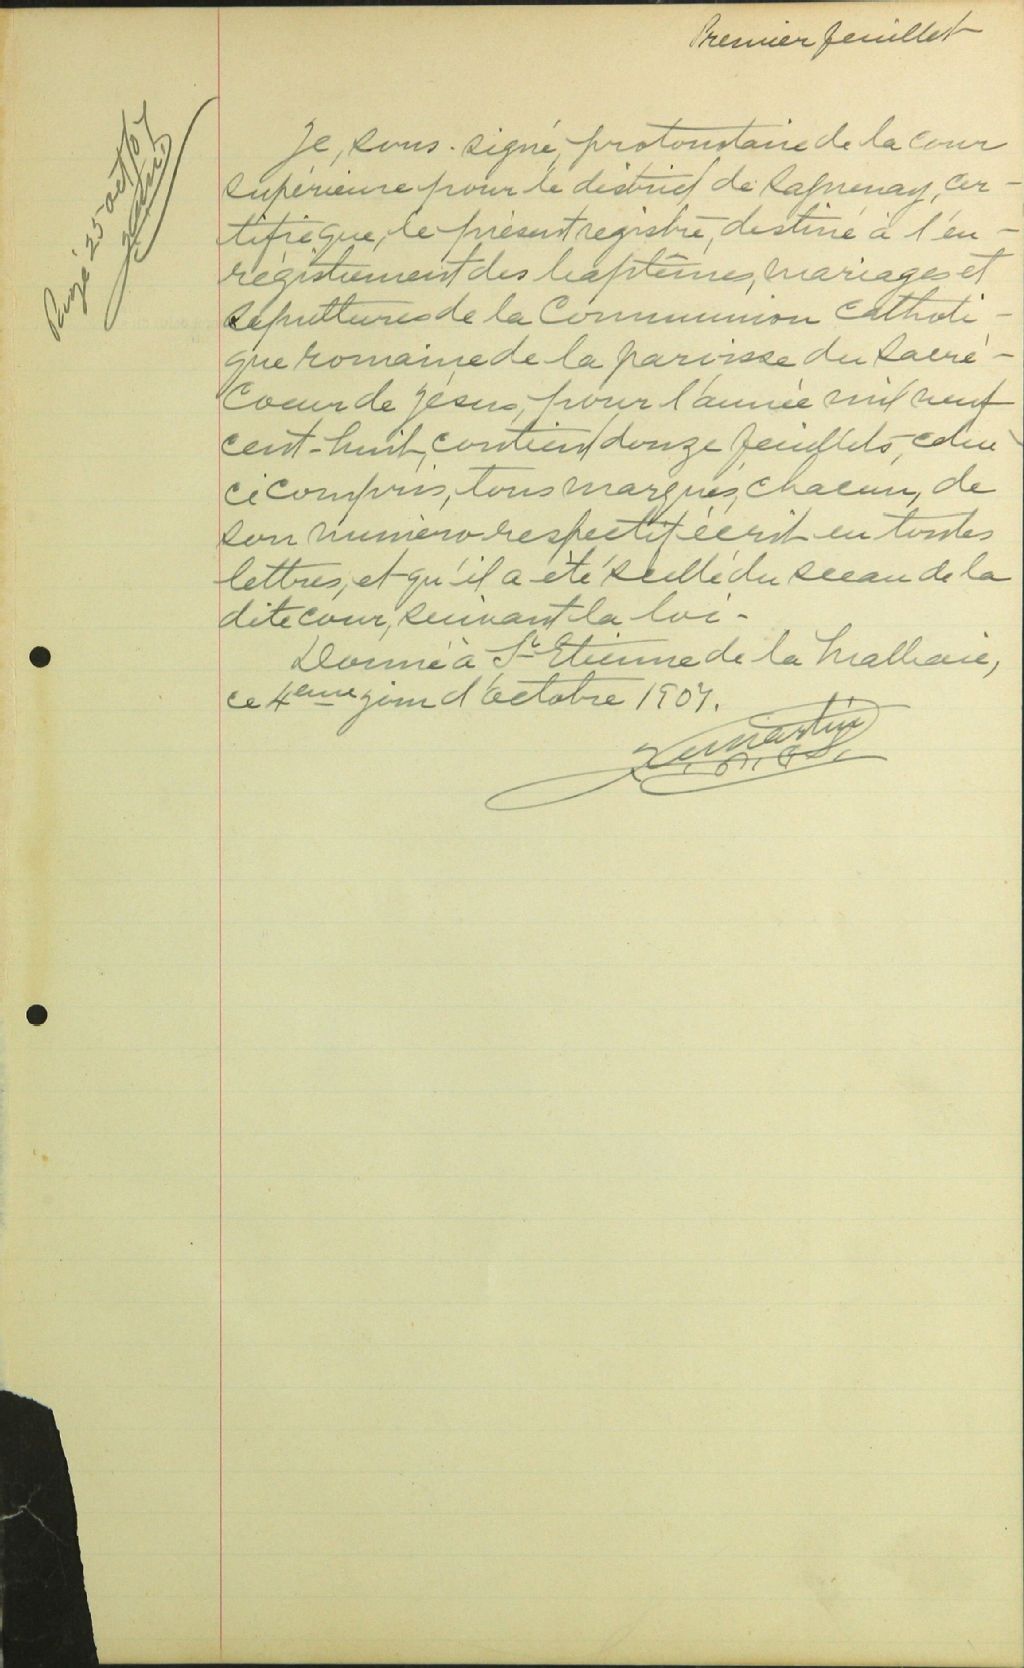 Premier feuillet
25 oct 07
Je, sous-signé, protonotaire de la cour
supérieure pour le district de Saguenay, cer-
tifie que, le présent registre, destiné à l'en-
régistrement des baptêmes, mariages et
sépultures de la Communion Catholi-
que romaine de la paroisse du Sacré-
Coeur de Jésus, pour l'année mil neuf
cent-huit, contient douze feuillets, celui
ci compris, tous marqués, chacun, de
son numéro respectif écrit en toutes
lettres, et qu'il a été scellé du sceau de la
dite cour, suivant la loi-
Donné à St Etienne de la Malbaie,
ce 4eme jour d'octobre 1907.